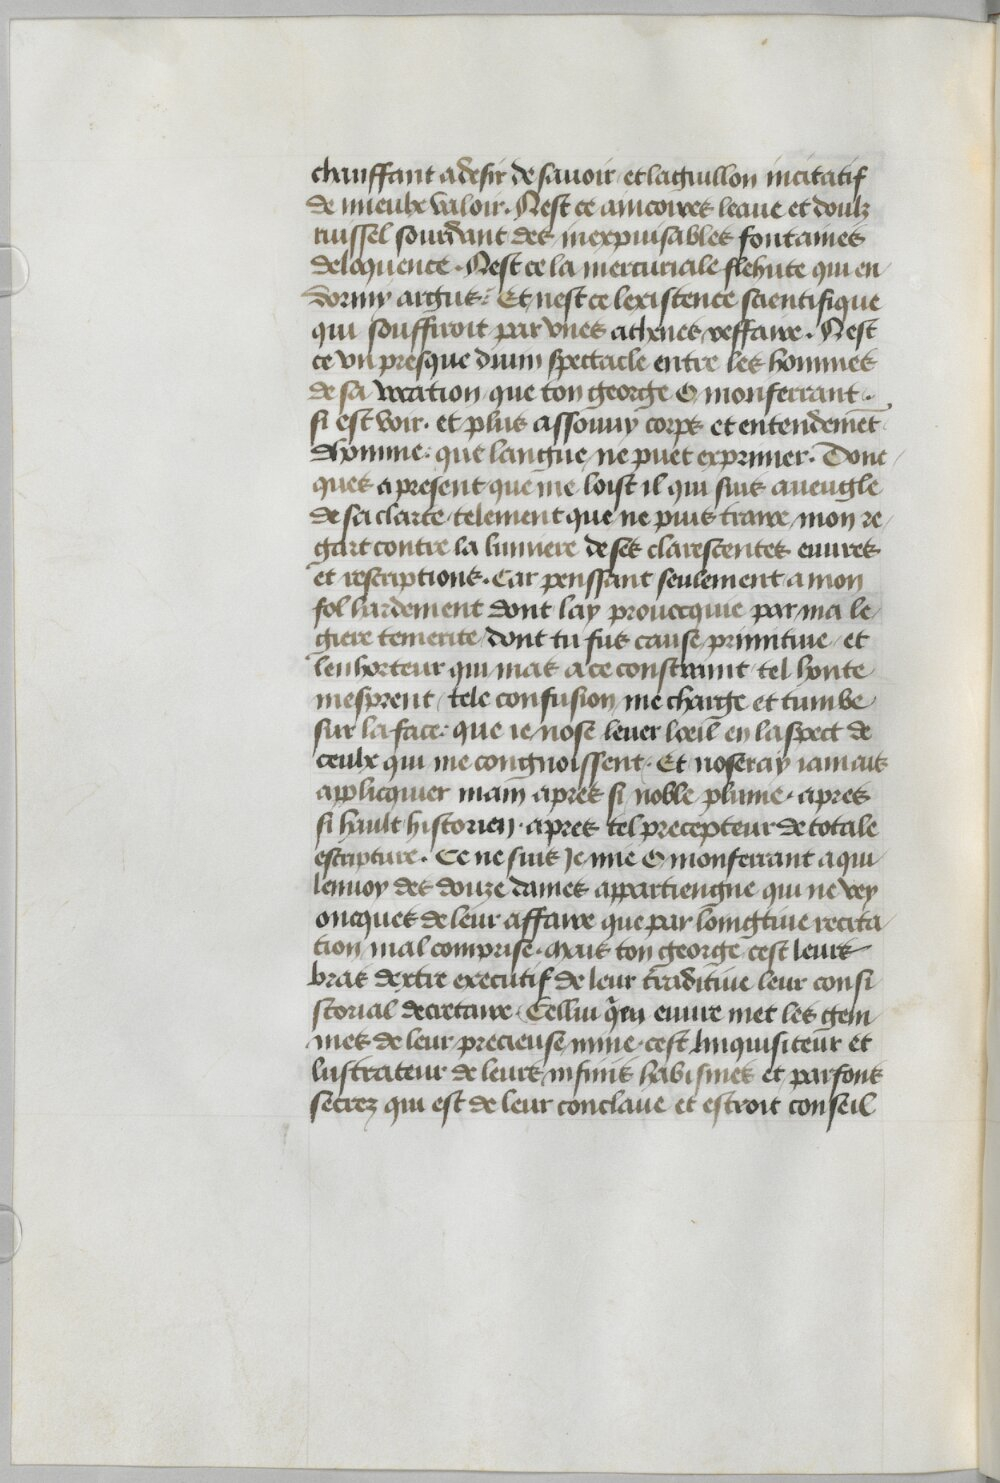 chauffant a desir de sauoir et laguillon incitatif
de mieulx valoir. Nest ce aincoires leaue et doulz
ruissel sourdant des inexpuisables fontaines
deloquence. Nest ce la mercuriale flehute qui en
dormy argus: Et nest ce lexistence scientifique
qui souffiroit par vnes athenes reffaire. Nest
ce vn presque diuin spectacle entre les hommes
de sa vocation que ton george O monferrant.
si est voir. et plus assouuy corps et entendemēt
dhomme: que langue ne puet exprimer. Donc
ques a present que me loist il qui suis aueugle
de sa clarte telement que ne puis traire mon re
gart contre la lumiere de ses clarescentes euures
et rescriptions. Car penssant seulement a mon
fol hardement dont lay prouecquie par ma le
giere temerite dont tu fus cause primitiue et
lenhorteur qui mas a ce constraint tel honte
mesprent tele confusion me charge et tumbe
sur la face: que ie nose leuer loeil en laspect de
ceulx qui me congnoissent. Et noseray iamais
applicquier main apres si noble plume. apres
si hault historien. apres tel precepteur de totale
escripture. Ce ne suis Je mie O monferrant a qui
lenuoy des douze dames appartiengne qui ne vey
oncques de leur affaire que par loingtiue recita
tion mal comprise. Mais ton george cest leurs
bras dextre executif de leur traditiue leur consi
storial decretaire. Cellui q̄ en euure met les gem
mes de leur precieuse mine. cest linquisiteur et
lustrateur de leurs infinis habismes et parfons
secrez qui est de leur conclaue et estroit conseil